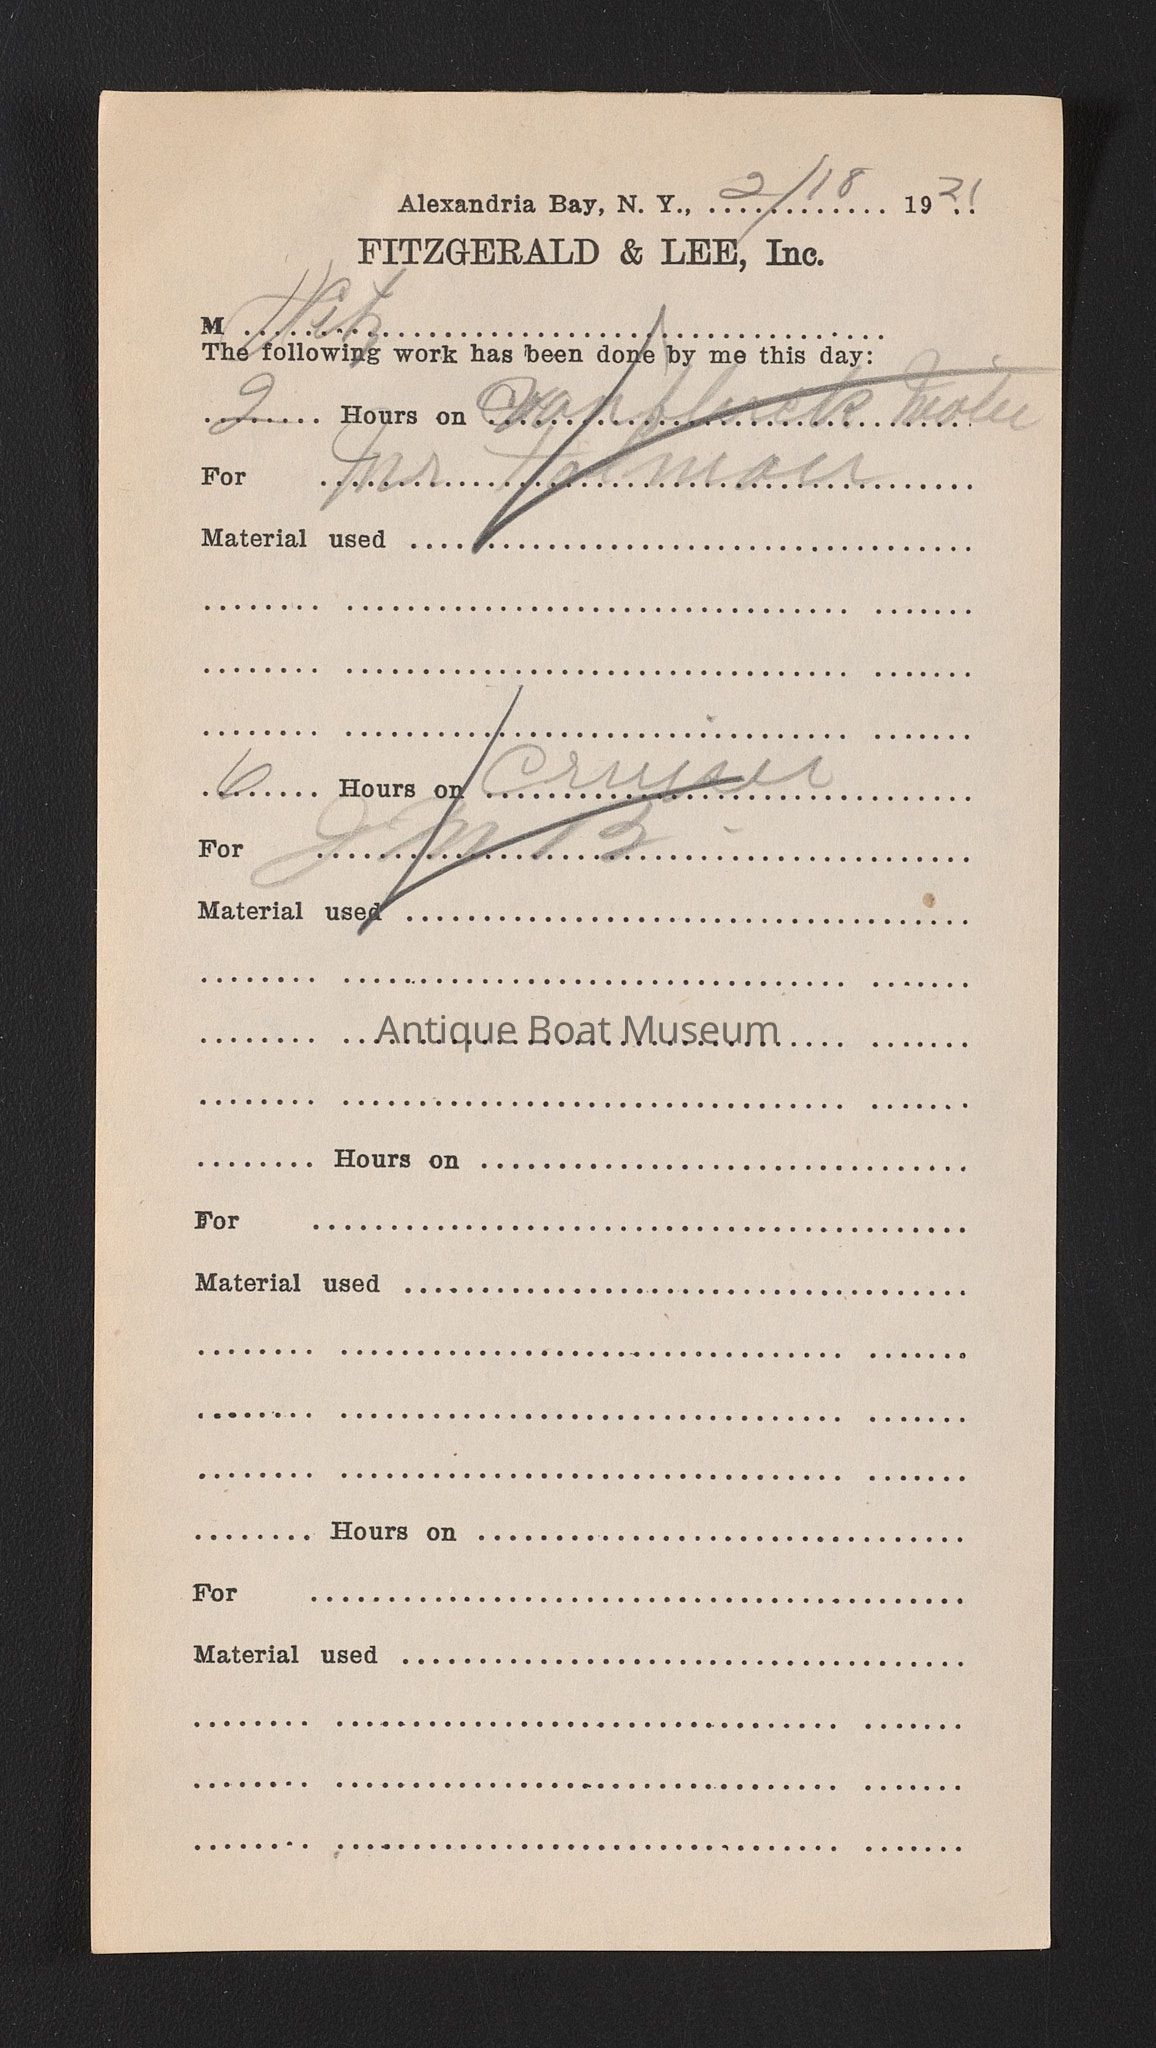 Alexandria Bay, N. Y., 2/18 1921
FITZGERALD & LEE, Inc.
M
The following work has been done by me this day:
2 Hours on
For Mr
Material used
6 Hours on Cruiser
For
Material used
Antique Boat Museum
Hours on
For
Material used
Hours on
For
Material used